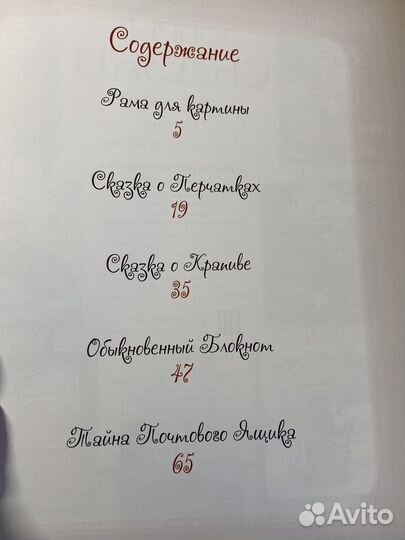 Содержание
Рама для картины
5
Сказка о Перчатках
19
Сказка о Крапиве
35
Обыкновенный Блокнот
47
Тайна Почтового Ящика
65
Avito